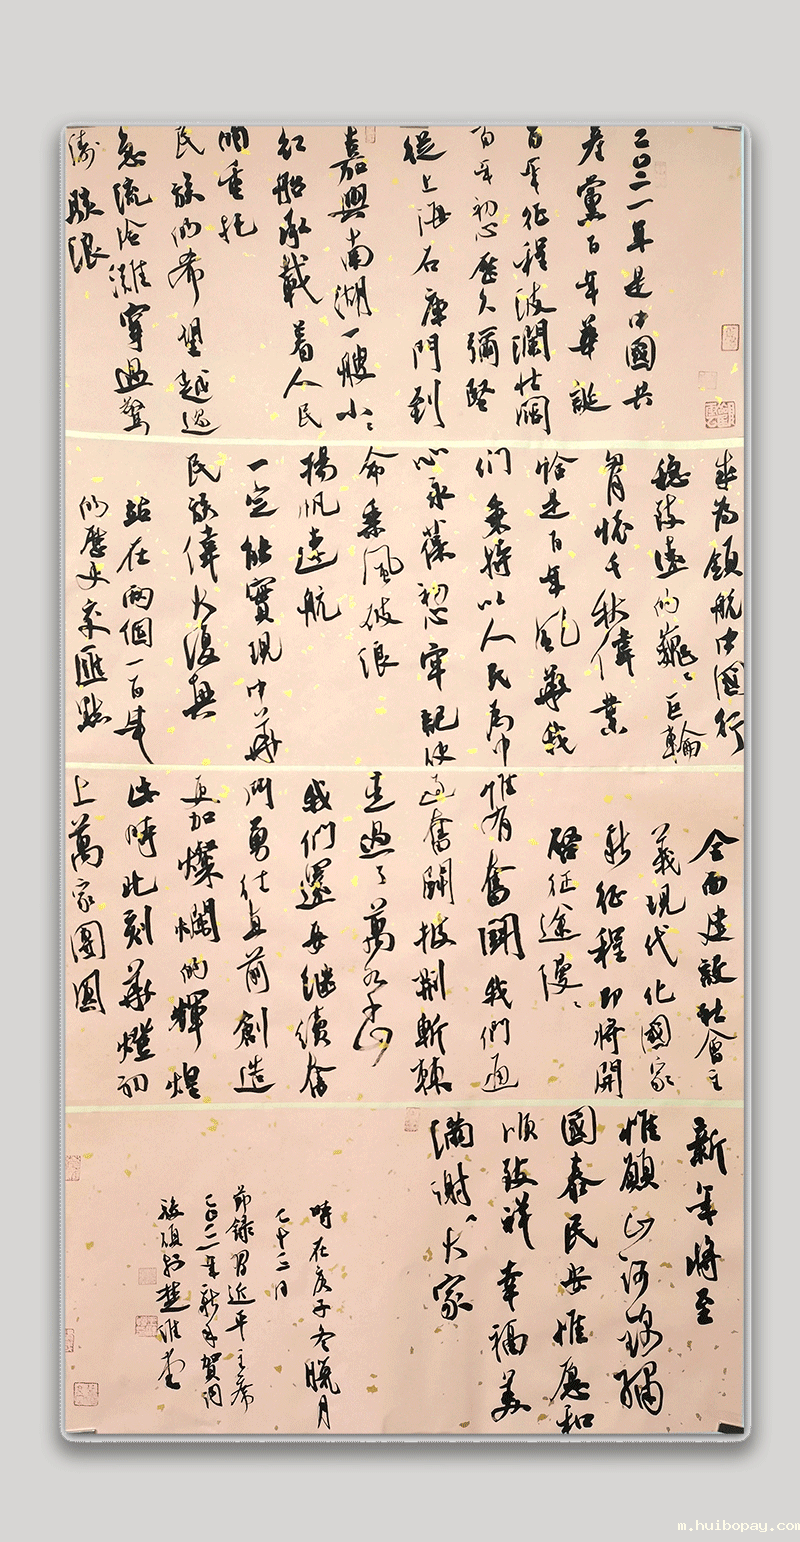 二〇二一年是中國共
產黨百年華誕
百年征程波瀾壯闊
百年初心歷久彌堅
從上海石庫門到
嘉興南湖一艘小〻
紅船承載着人民
的重托
民族的希望越過
急流險灘穿過驚
濤駭浪
成為領航中國行
穩致遠的巍〻巨輪
胸懷千秋偉業
恰是百年風華我
們秉持以人民為中
心永葆初心牢記使
命乘風破浪
揚帆遠航
一定能實現中華
民族偉大復興
站在兩個一百年
的歷史交匯點
上
全面建設社會主
義現代化國家
新征程即將開
啟征途漫〻
惟有奮鬥我們通
過奮鬥披荊斬棘
走過了萬水千山
我們還要繼續奮
鬥勇往直前創造
更加燦爛的輝煌
此時此刻華燈初
上萬家團圓
新年將至
惟願山河錦繡
國泰民安惟愿和
順致祥幸福美
滿謝〻大家
時在庚子冬臘月
十二日
節錄習近平主席
二〇二一年新年賀詞
m.huibopay.com